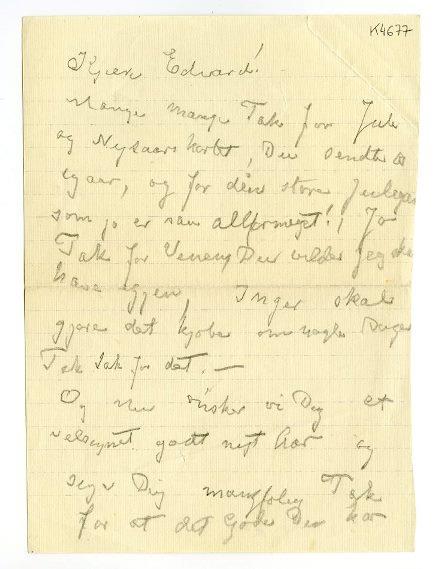 K4677
Kjære Edvard!
Mange mange Tak for Jule
og Nytaars kortet, Du sendte
igaar, og for den store Julegav
som jo er saa altformeget!, Jo
Tak for Du vilde jeg
have igjen, Inger skal
gjøre det kjøbe om nogle Dager
Tak Tak for det. —
Og nu ønsker vi Dig et
velsignet godt nyt Aar og
siger Dig mangfoldig Tak
for at det Gode Du har